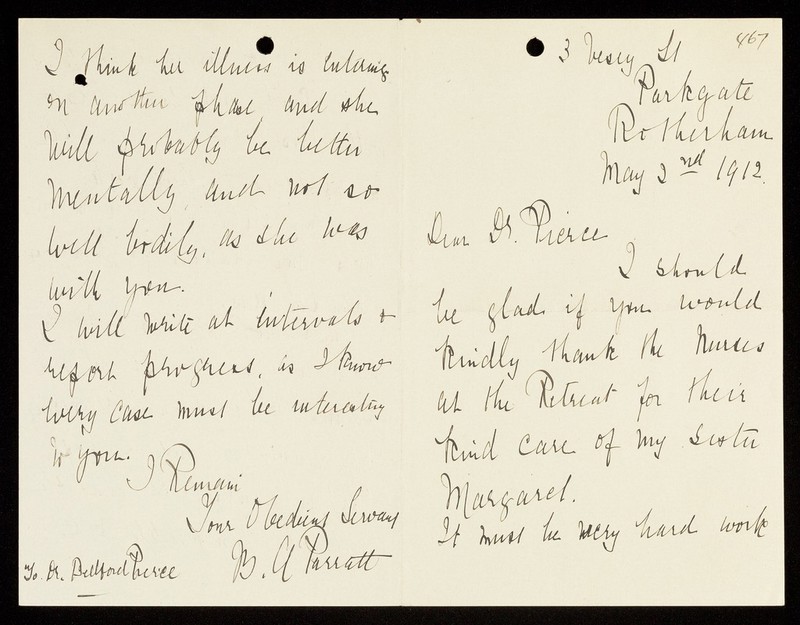 467
3 Vesey St
Parkgate
Rotherham
May 2nd 1912.
Dear Dr. Pierce
I should
be glad if you would
kindly thank the Nurses
at the Retreat for their
kind care of my sister
Margaret.
It must be very hard work
I think her illness is entering
on another phase and she
will probably be better
mentally, and not so
well bodily, as she was
with you.
I will write at intervals &
report progress, as I know
every case must be interesting
to you.
I Remain
Your Obedient Servant
B. A Parratt
To Dr. Bedford Pierce